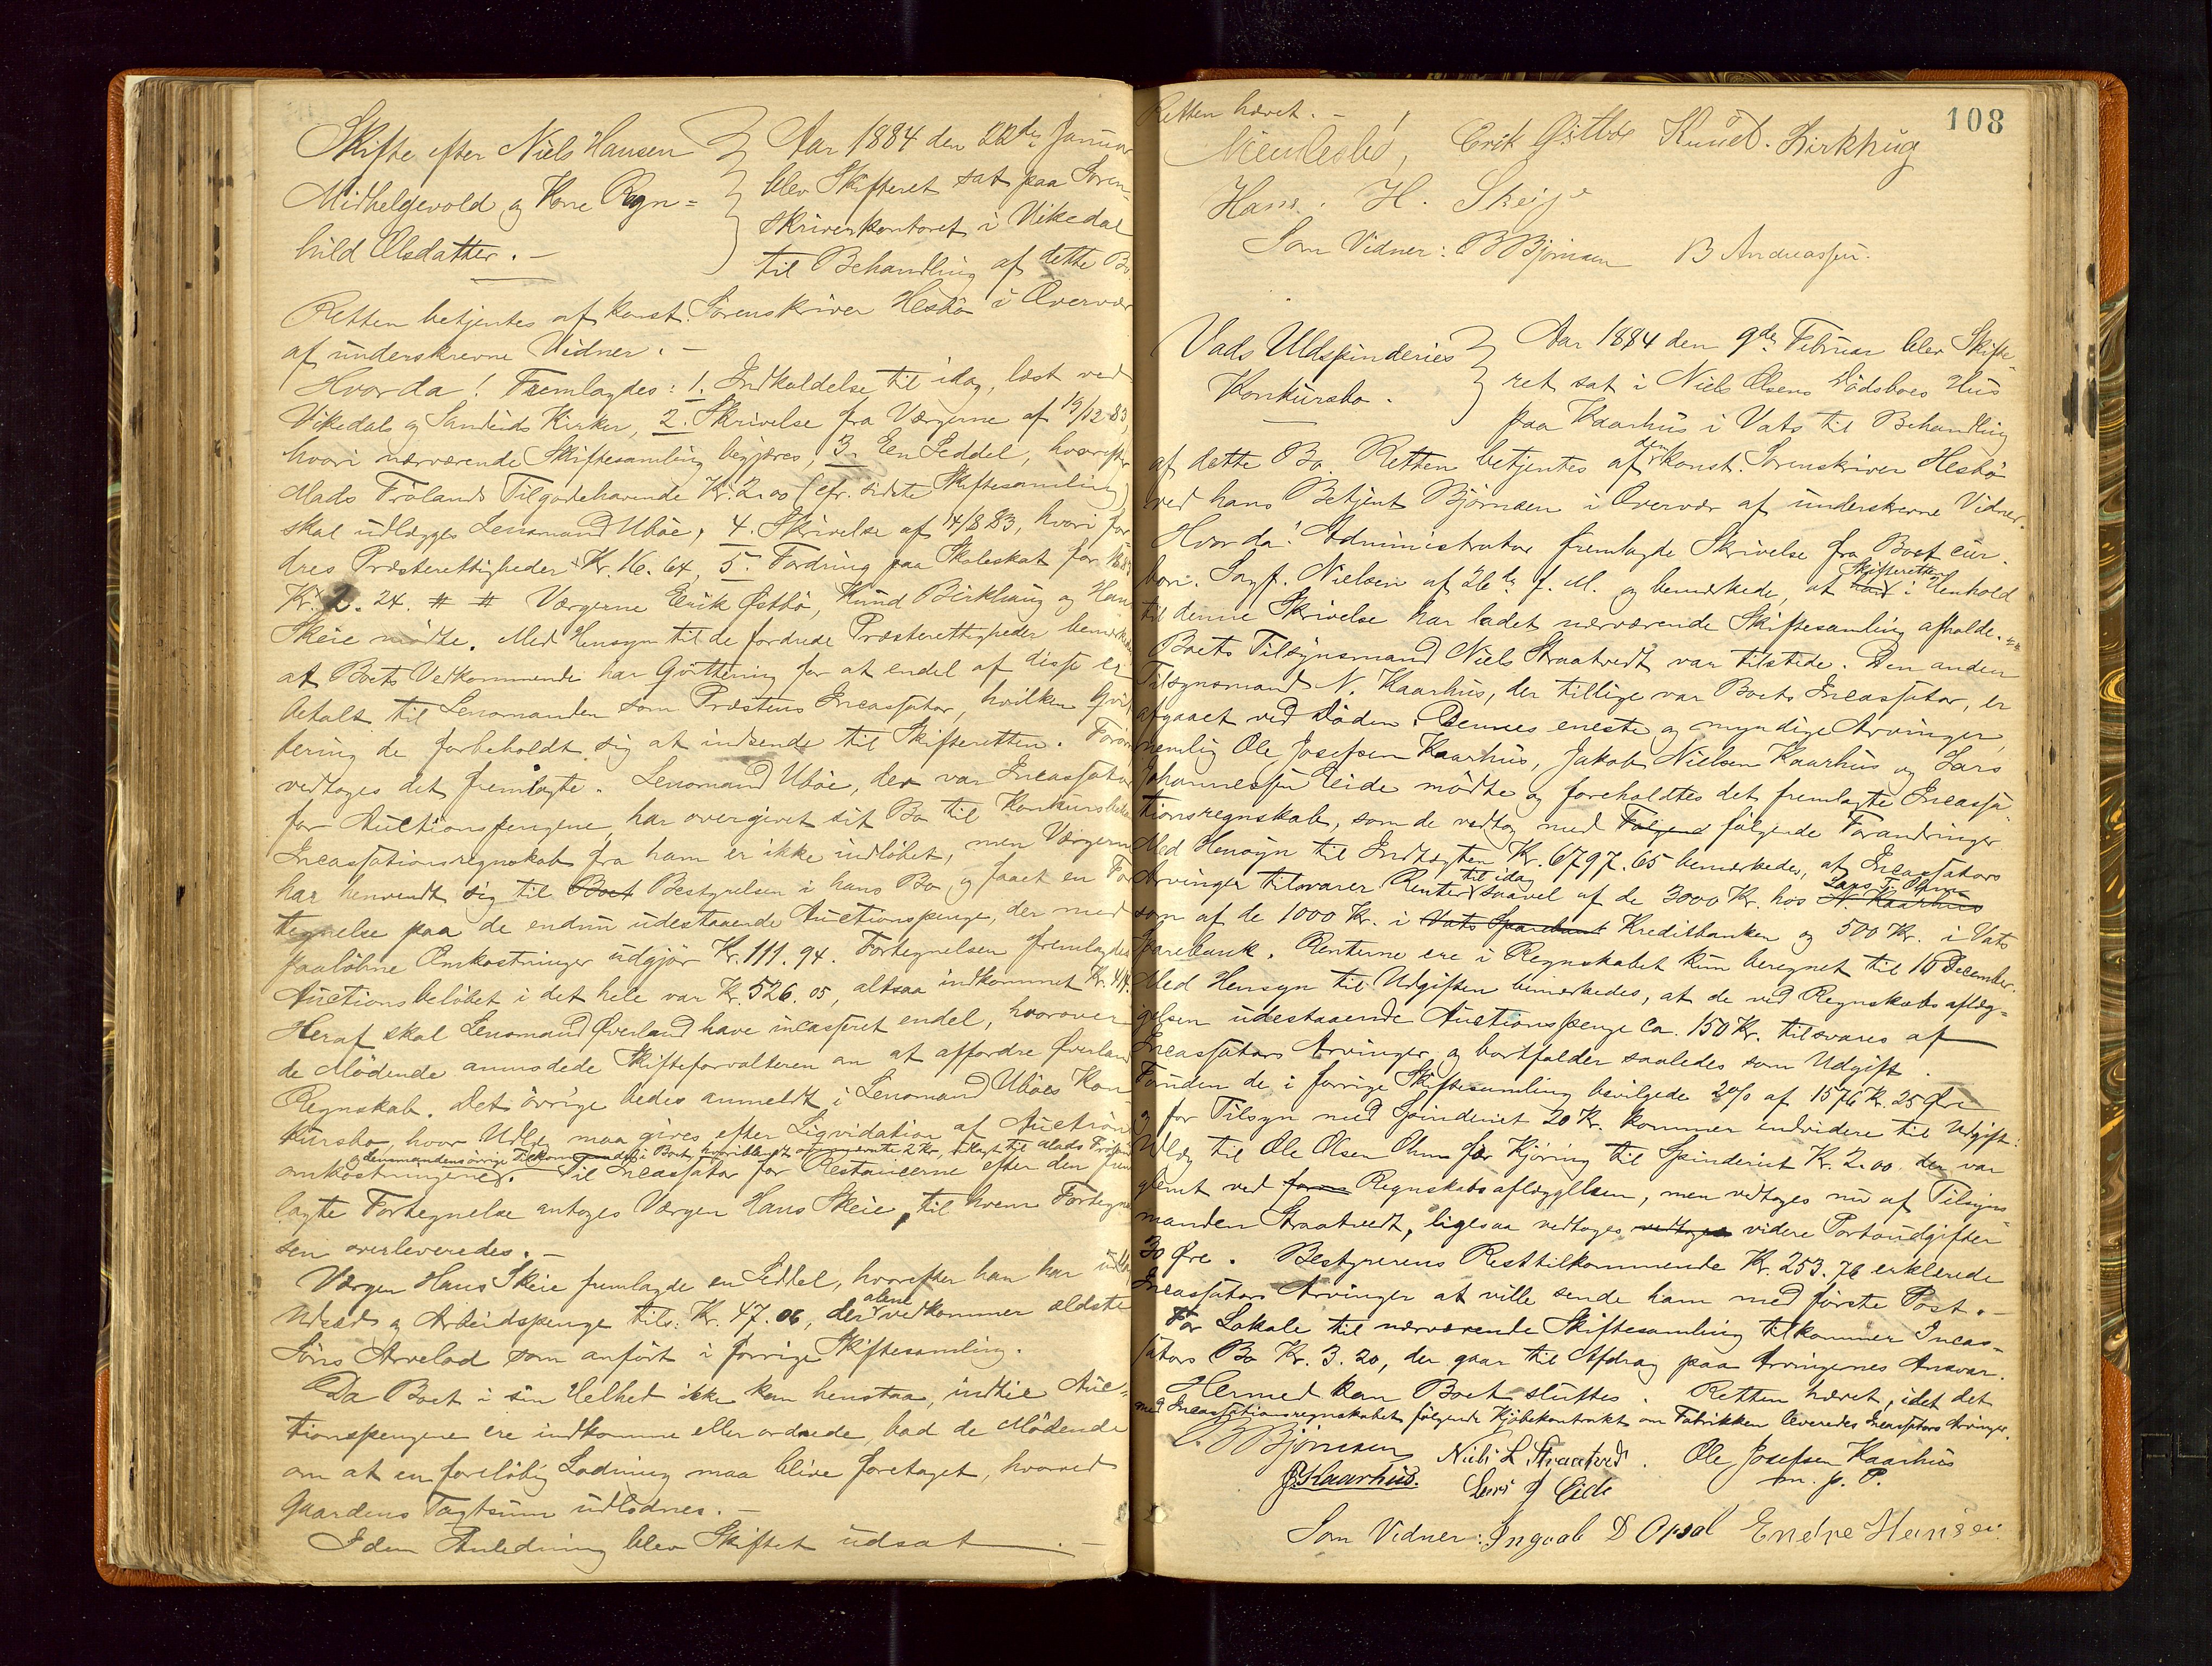 Skifte efter Niels Hansen
Midhelgevold og Kone Ragn=
hild Olsdatter. —
Aar 1884 den 22de Januar
blev Skifteret sat paa Soren-
skriverkontoret i Vikedal
til Behandling af dette Bo
Retten betjentes af konst. Sorenskriver Hesbö i Overvær
af underskrevne Vidner. —
Hvorda! Fremlagdes: 1. Indkaldelse til idag, læst ved
Vikedals og Sandeids Kirker, 2. Skrivelse fra Værgerne af 19/12 83,
hvori nærværende Skiftesamling begjæres, 3. En Seddel, hvorefter
Mads Frölands Tilgodehavende Kr. 2.00 (cfr. sidste Skiftesamling)
skal udlægges Lensmand Uböe, 4. Skrivelse af 14/8 83, hvori for
dres Præsterettigheder Kr. 16. 64, 5. Fordring paa Skoleskat for
Kr. 2. 24. # # Værgerne Erik Østbö, Knud Birkhaug og Hans
Skeie mödte. Med Hensyn til de fordrede Præsterettigheder bemærkedes
at Boets Vedkommende har Qvittering for at endel af disse er
betalt til Lensmanden som Præstens Incassator, hvilken Qvit
tering de forbeholdt sig at indsende til Skifteretten. Forøv
vedtoges det fremlagte. Lensmand Uböe, der var Incassator
for Auctionspengene, har overgivet sit Bo til Konkursbeh
Incassationsregnskab fra ham er ikke indløbet, men Værgerne
har henvendt sig til Boet Bestyrelsen i hans Bo og faaet en For
tegnelse paa de endnu udestaaende Auctionspenge, der med
paalöbne Omkostninger udgjör Kr. 111. 94. Fortegnelsen fremlagdes
Auctionsbelöbet i det hele var Kr. 526. 05, altsaa indkommet Kr. 414.
Heraf skal Lensmand Øverland have incasseret endel, hvorover
de Mödende anmodede Skifteforvalteren om at affordre Øverland
Regnskab. Det övrige bedes anmeldt i Lensmand Uböes Kon
kursbo, hvor Udlæg maa gives efter Liqvidation af Auctions
og Lensmandens övrige Tilkommende i Boet, 2 Kr, tillagt til Mads Fröland
omkostningerne. Til Incassator for Restancerne efter den frem
lagte Fortegnelse antoges Værgen Hans Skeie, til hvem Fortegnel
sen overleveredes. —
Værgen Hans Skeie fremlagde en Seddel, hvorefter han har udlagt
Udsæd og Arbeidspenge tils. Kr. 47. 06, der alene vedkommer ældste
Söns Arvelod som anfört i forrige Skiftesamling.
Da Boet i sin Helhed ikke kan henstaa, indtil Auc=
tionspengene ere indkomne eller ordnede, bad de Mödende
om at en forelöbig Lodning maa blive foretaget, hvorved
Gaardens Taxtsum udlodnes. —
I den Anledning blev Skiftet udsat —
108
Retten hævet. —
Erik Østbø Knud. Birkhug
Hans. H. Skeije
Som Vidner: B Björnsen B Andreassen.
Vads Uldspinderies
Konkursbo.
Aar 1884 den 9de Februar blev Skifte-
ret sat i Niels Olsens Dödsboes Hus
paa Kaarhus i Vats til Behandling
af dette Bo. Retten betjentes af den konst. Sorenskriver Hesbö
ved hans Betjent Björnsen i Overvær af underskrevne Vidner.
Hvorda! Administrator fremlagde Skrivelse fra Boet cur.
bon. Sagf. Nielsen af 26de f. M. og bemærkede, at Skifteretten i Henhold
til denne Skrivelse har ladet nærværende Skiftesamling afholde.
Boets Tilsynsmand Niels Straatvedt var tilstede. Den anden
Tilsynsmand N. Kaarhus, der tillige var Boets Incassator, er
afgaaet ved Döden. Dennes eneste og myndige Arvinger,
nemlig Ole Josefsen Kaarhus, Jakob Nielsen Kaarhus og Lars
Johannessen Eide mödte og foreholdtes det fremlagte Incassa-
tionsregnskab, som de vedtog med Følgend fölgende Forandringer
Med Hensyn til Indtægten Kr. 6797. 65 bemærkedes, at Incassators
Arvinger tilsvarer Renter til idag saavel af de 3000 Kr. hos N. Kaarhus
som af de 1000 Kr. i Vats Sparebank Kreditbanken og 500 Kr. i Vats
Sparebank. Renterne ere i Regnskabet kun beregnet til 10 December.
Med Hensyn til Udgiften bemærkedes, at de ved Regnskabsaflæg-
gelsen udestaaende Auctionspenge ca. 150 Kr. tilsvares af
Incassators Arvinger og bortfalder saaledes som Udgift.
Foruden de i forrige Skiftesamling bevilgede 2% af 1576 Kr. 25 Øre
og for Tilsyn med Spinderiet 20 Kr. kommer endvidere til Udgift:
Udlæg til Ole Olsen Ohm for Kjöring til Spinderiet Kr. 2.00 der var
glemt ved Regnskabsaflæggelsen, men vedtoges nu af Tilsyns-
manden Straatvedt, ligesaa vedtoges vedtoges videre Portoudgifter
30 Øre. Bestyrerens Resttilkommende Kr. 253. 76 erklærede
Incassators Arvinger at ville sende ham med förste Post. —
For Lokale til nærværende Skiftesamling tilkommer Incas-
sators Bo Kr. 3. 20, der gaar til Afdrag paa Arvingernes Ansvar.
Hermed kan Boet sluttes. Retten hævet, idet det
med Incassationsregnskabet fölgende Kjöbekontrakt om Fabrikken leveredes Incassators Arvinger.
B Björnsen Niels L Straatvedt. Ole Josefsen Kaarhus
J Kaarhus. Lars J Eide m. p. P.
Som Vidner: Ingvald D Opsal Endre Hansen